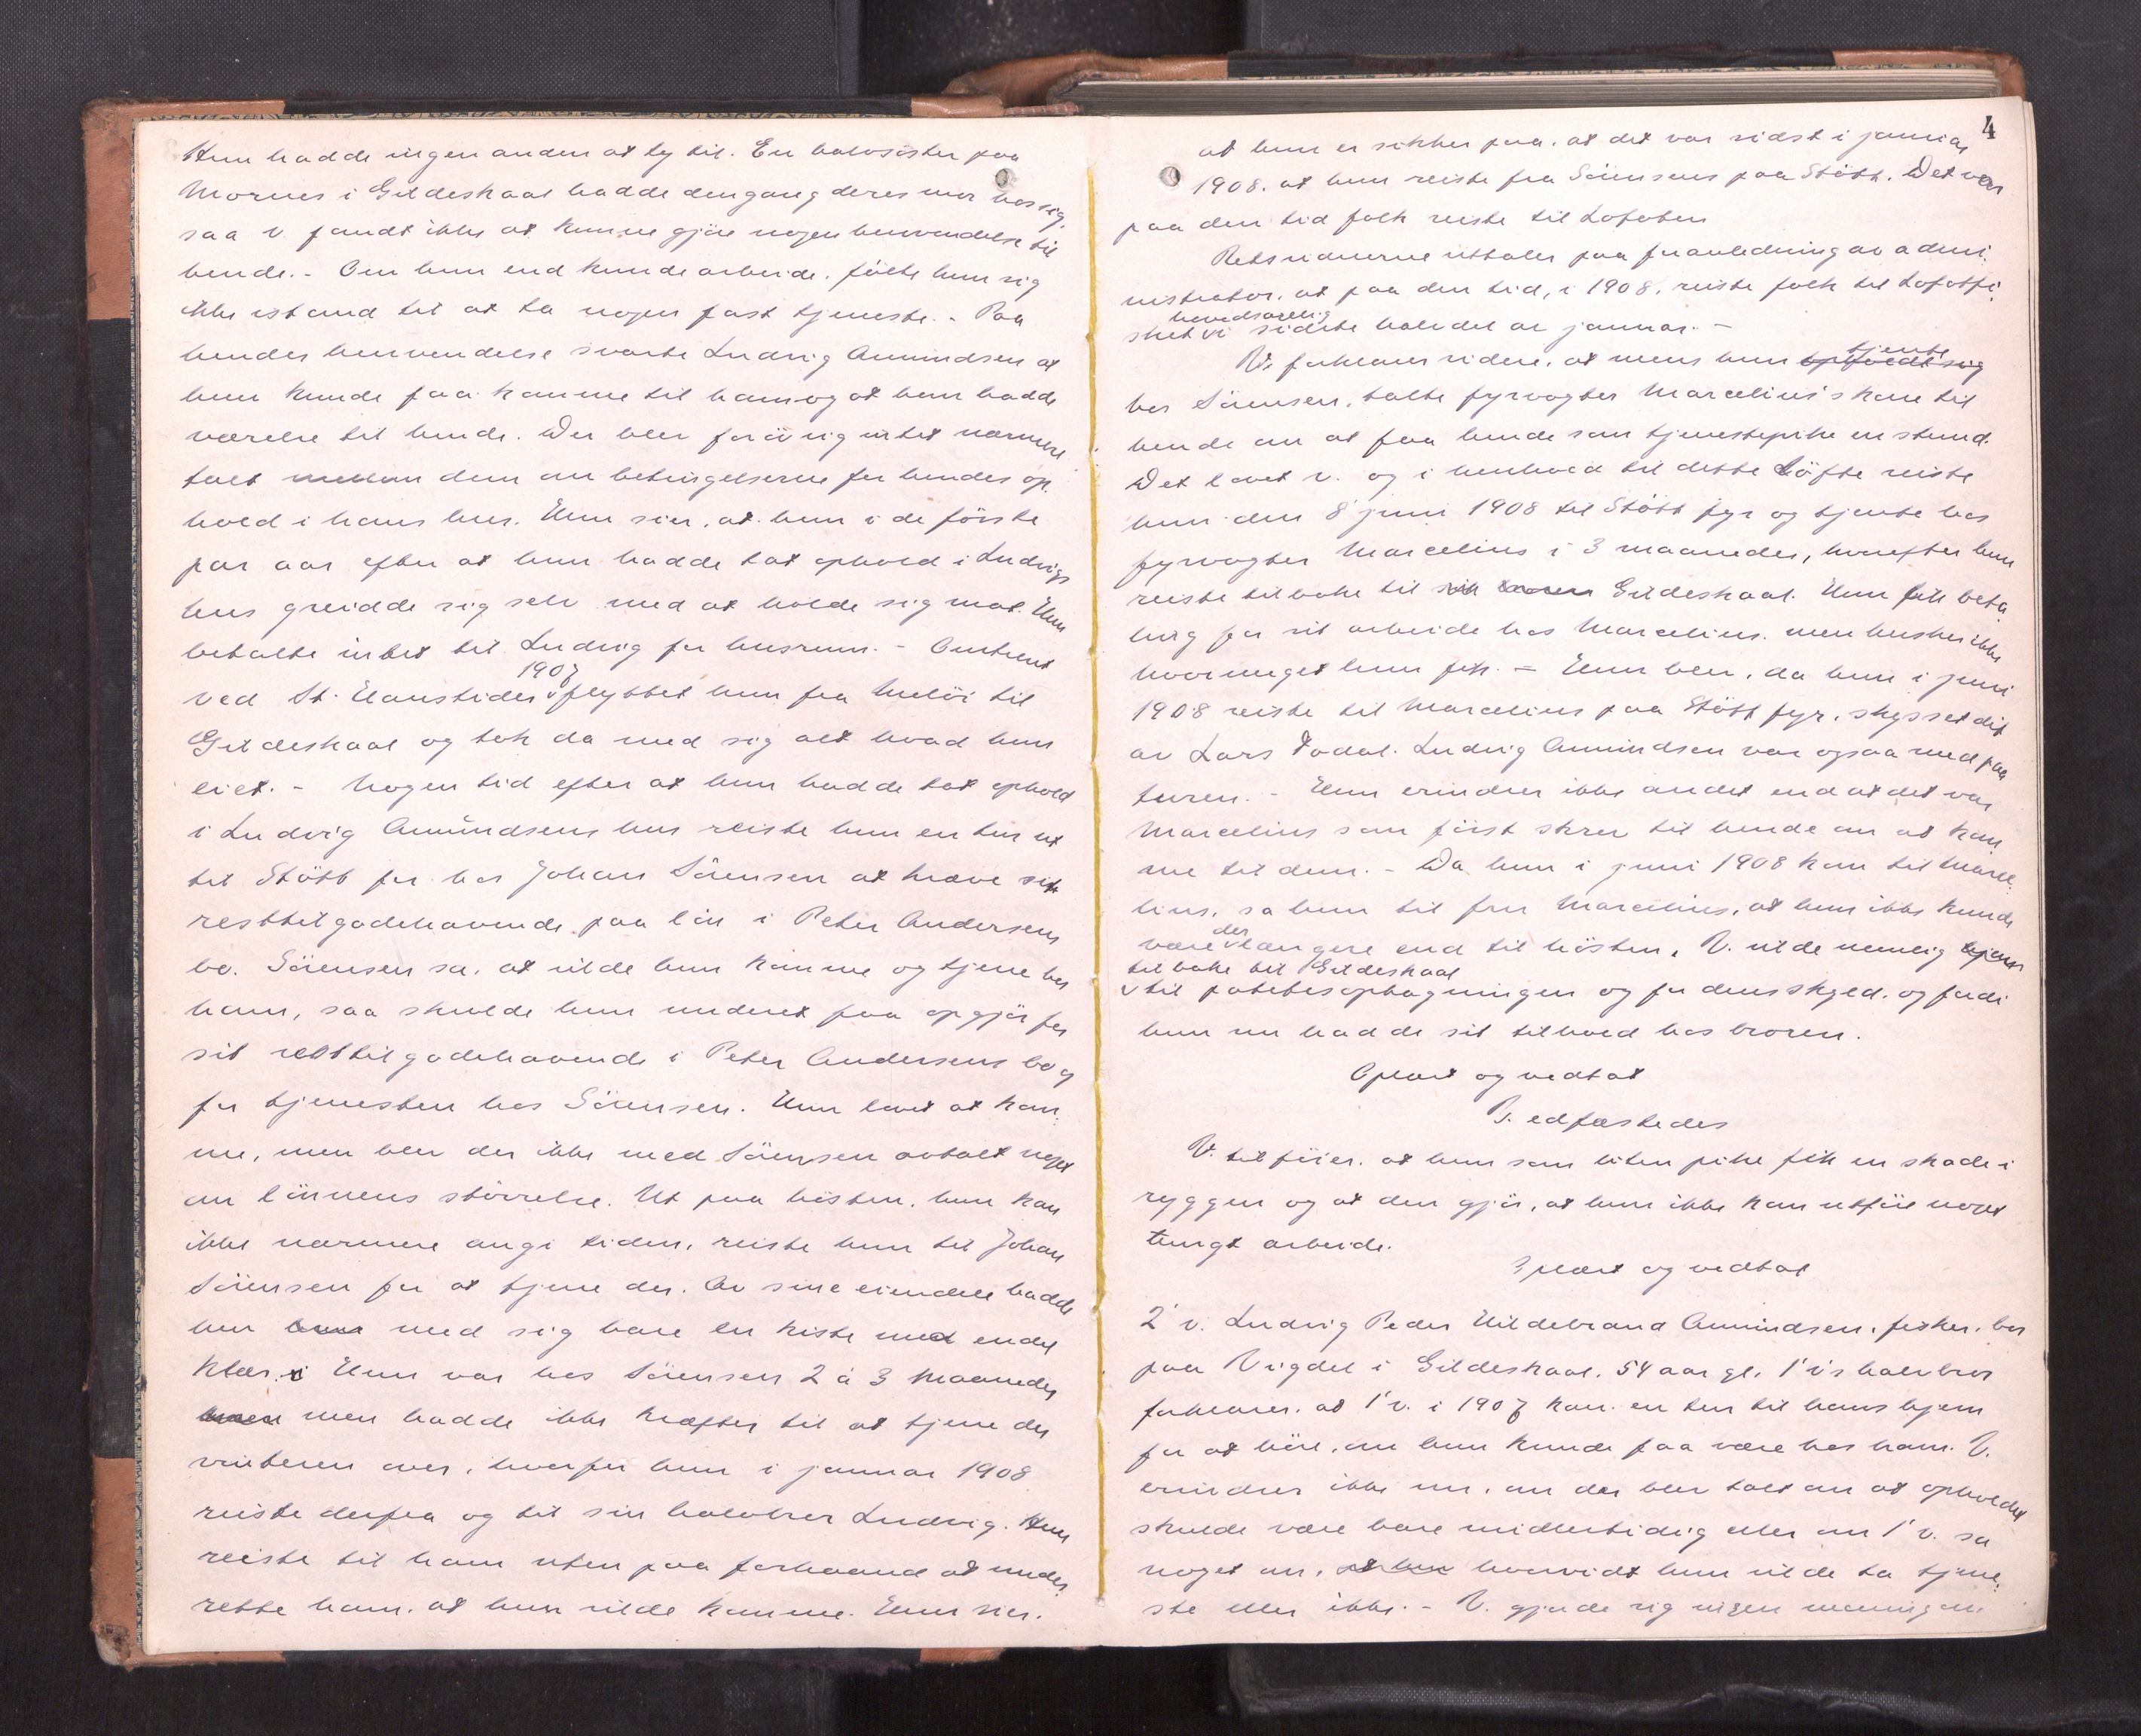 Hun hadde ingen anden at ty til. En halvsöster paa
Mornes i Gildeskaal hadde dengang deres mor hos sig,
saa v. fandt ikke at kunne gjöre nogen henvendelse til
hende. - Om hun end kunde arbeide, fölte hun sig
ikke istand til at ta nogen fast tjeneste. - Paa
hendes henvendelse svarte Ludvig Amundsen at
hun kunde faa komme til ham og at han hadde
værelse til hende. Der blev forövrig intet nærmere
talt mellem dem om betingelserne for hendes op-
hold i hans hus. Hun sier, at hun i de förste
par aar efter at hun hadde tat ophold i Ludvigs
hus greidde sig selv med at holde sig mat. Hun
betalte intet til Ludvig for husrum. - Omtrent
1907
ved St. Hanstider flyttet hun fra Melöi til
Gildeskaal og tok da med sig alt hvad hun
eiet. - Nogen tid efter at hun hadde tat ophold
i Ludvig Amundsens hus reiste hun en tur ut
til Stött for hos Johan Sörensen at hæve sit
resttilgodehavende paa lön i Peter Andersens
bo. Sörensen sa, at vilde hun komme og tjene hos
ham, saa skulde hun under et faa opgjör for
sit resttilgodehavende i Peter Andersens bo og
for tjenesten hos Sörensen. Hun lovet at kom-
me, men blev der ikke med Sörensen avtalt noget
om lönnens störrelse. Ut paa hösten, hun kan
ikke nærmere angi tiden, reiste hun til Johan
Sörensen for at tjene der. Av sine eiendele hadde
hun med sig bare en kiste med endel
klær. Hun var hos Sörensen 2 à 3 maaneder
men hadde ikke kræfter til at tjene der
vinteren over, hvorfor hun i januar 1908
reiste derfra og til sin halvbror Ludvig. Hun
reiste til ham uten paa forhaand at under-
rette ham, at hun vilde komme. Hun sier,
4
at hun er sikker paa, at det var sidst i januar
1908, at hun reiste fra Sörensens paa Stött. Det var
paa den tid folk reiste til Lofoten
Retsvidnerne uttaler paa foranledning av admi-
nistrator, at paa den tid, i 1908, reiste folk til Lofotfi-
hovedsakelig
sket i sidste halvdel av januar. -
tjente
V. forklarer videre, at mens hun opholdt sig
hos Sörensen, talte fyrvogter Marcelius's kone til
hende om at faa hende som tjenestepike en stund.
Det lovet v. og i henhold til dette löfte reiste
hun den 8 juni 1908 til Stött fyr og tjente hos
fyrvogter Marcelius i 3 maaneder, hvorefter hun
reiste tilbake til Gildeskaal. Hun fik beta-
ling for sit arbeide hos Marcelius, men husker ikke
hvormeget hun fik. - Hun blev, da hun i juni
1908 reiste til Marcelius paa Stött fyr, skysset dit
av Lars Fodal. Ludvig Amundsen var ogsaa med paa
turen. - Hun erindrer ikke andet end at det var
Marcelius som först skrev til hende om at kom-
me til dem. - Da hun i juni 1908 kom til Marce-
lius, sa hun til fru Marcelius, at hun ikke kunde
der
være længere end til hösten. V. vilde nemlig hjem
tilbake til Gildeskaal
til potetesoptagningen og for dens skyld, og fordi
hun nu hadde sit tilhold hos broren.
Oplæst og vedtat
V. edfæstedes
V. tilföier, at hun som liten pike fik en skade i
ryggen og at den gjör, at hun ikke kan utföre noget
tungt arbeide.
Oplæst og vedtat
2' v. Ludvig Peder Hildebrand Amundsen, fisker, bor
paa Vigdel i Gildeskaal, 54 aar gl. 1' v's halvbror
forklarer, at 1' v. i 1907 kom en tur til hans hjem
for at höre, om hun kunde faa være hos ham. V.
erindrer ikke nu, om der blev talt om at opholdet
skulde være bare midlertidig eller om 1' v. sa
noget om, at hun hvorvidt hun vilde ta tjene-
ste eller ikke. - V. gjorde sig ingen mening om